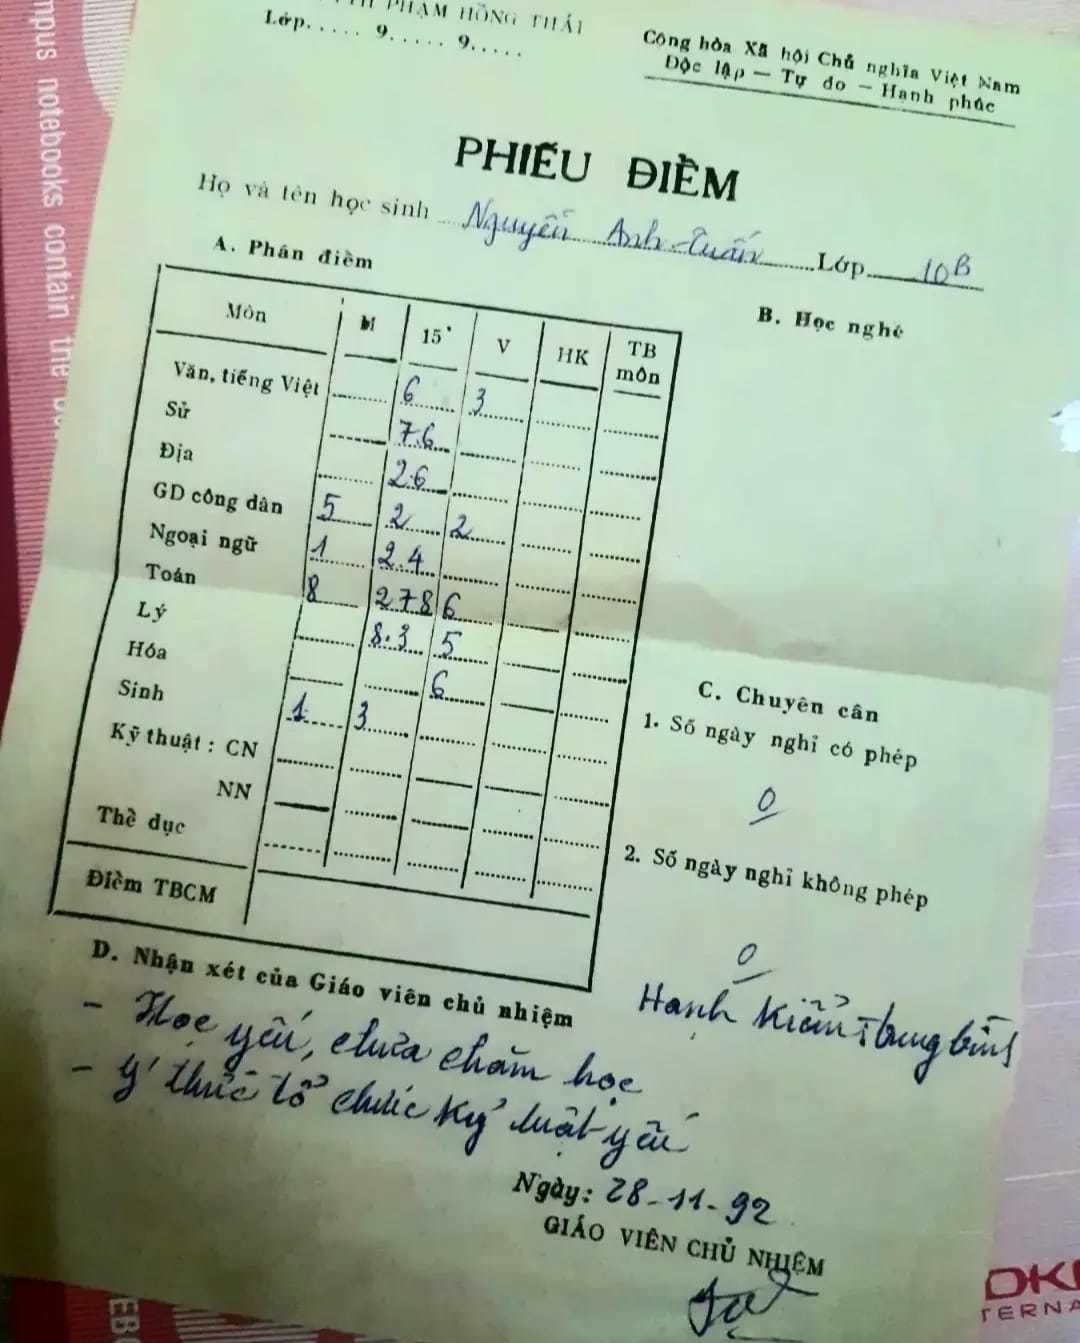 PHẠM HỒNG THÁI
Lớp..... 9..... 9.....
Cộng hòa Xã hội Chủ nghĩa Việt Nam
Độc lập — Tự do — Hạnh phúc
PHIẾU ĐIỂM
Họ và tên học sinh Nguyễn Anh-Tuấn Lớp 10B
A. Phần điểm
B. Học nghề
Môn M 15' V HK TB môn
Văn, tiếng Việt 6 3
Sử 7.6
Địa 2.6
GD công dân 5 2 2
Ngoại ngữ 1 2.4
Toán 8 2 7 8 6
Lý 8.3 5
Hóa 6
Sinh 1 3
Kỹ thuật : CN
NN
Thể dục
Điểm TBCM
C. Chuyên cần
1. Số ngày nghỉ có phép
0
2. Số ngày nghỉ không phép
0
Hạnh kiểm trung bình
D. Nhận xét của Giáo viên chủ nhiệm
- Học yếu, chưa chăm học
- Ý thức tổ chức kỷ luật yếu
Ngày: 28-11-92
GIÁO VIÊN CHỦ NHIỆM
notebooks contain the